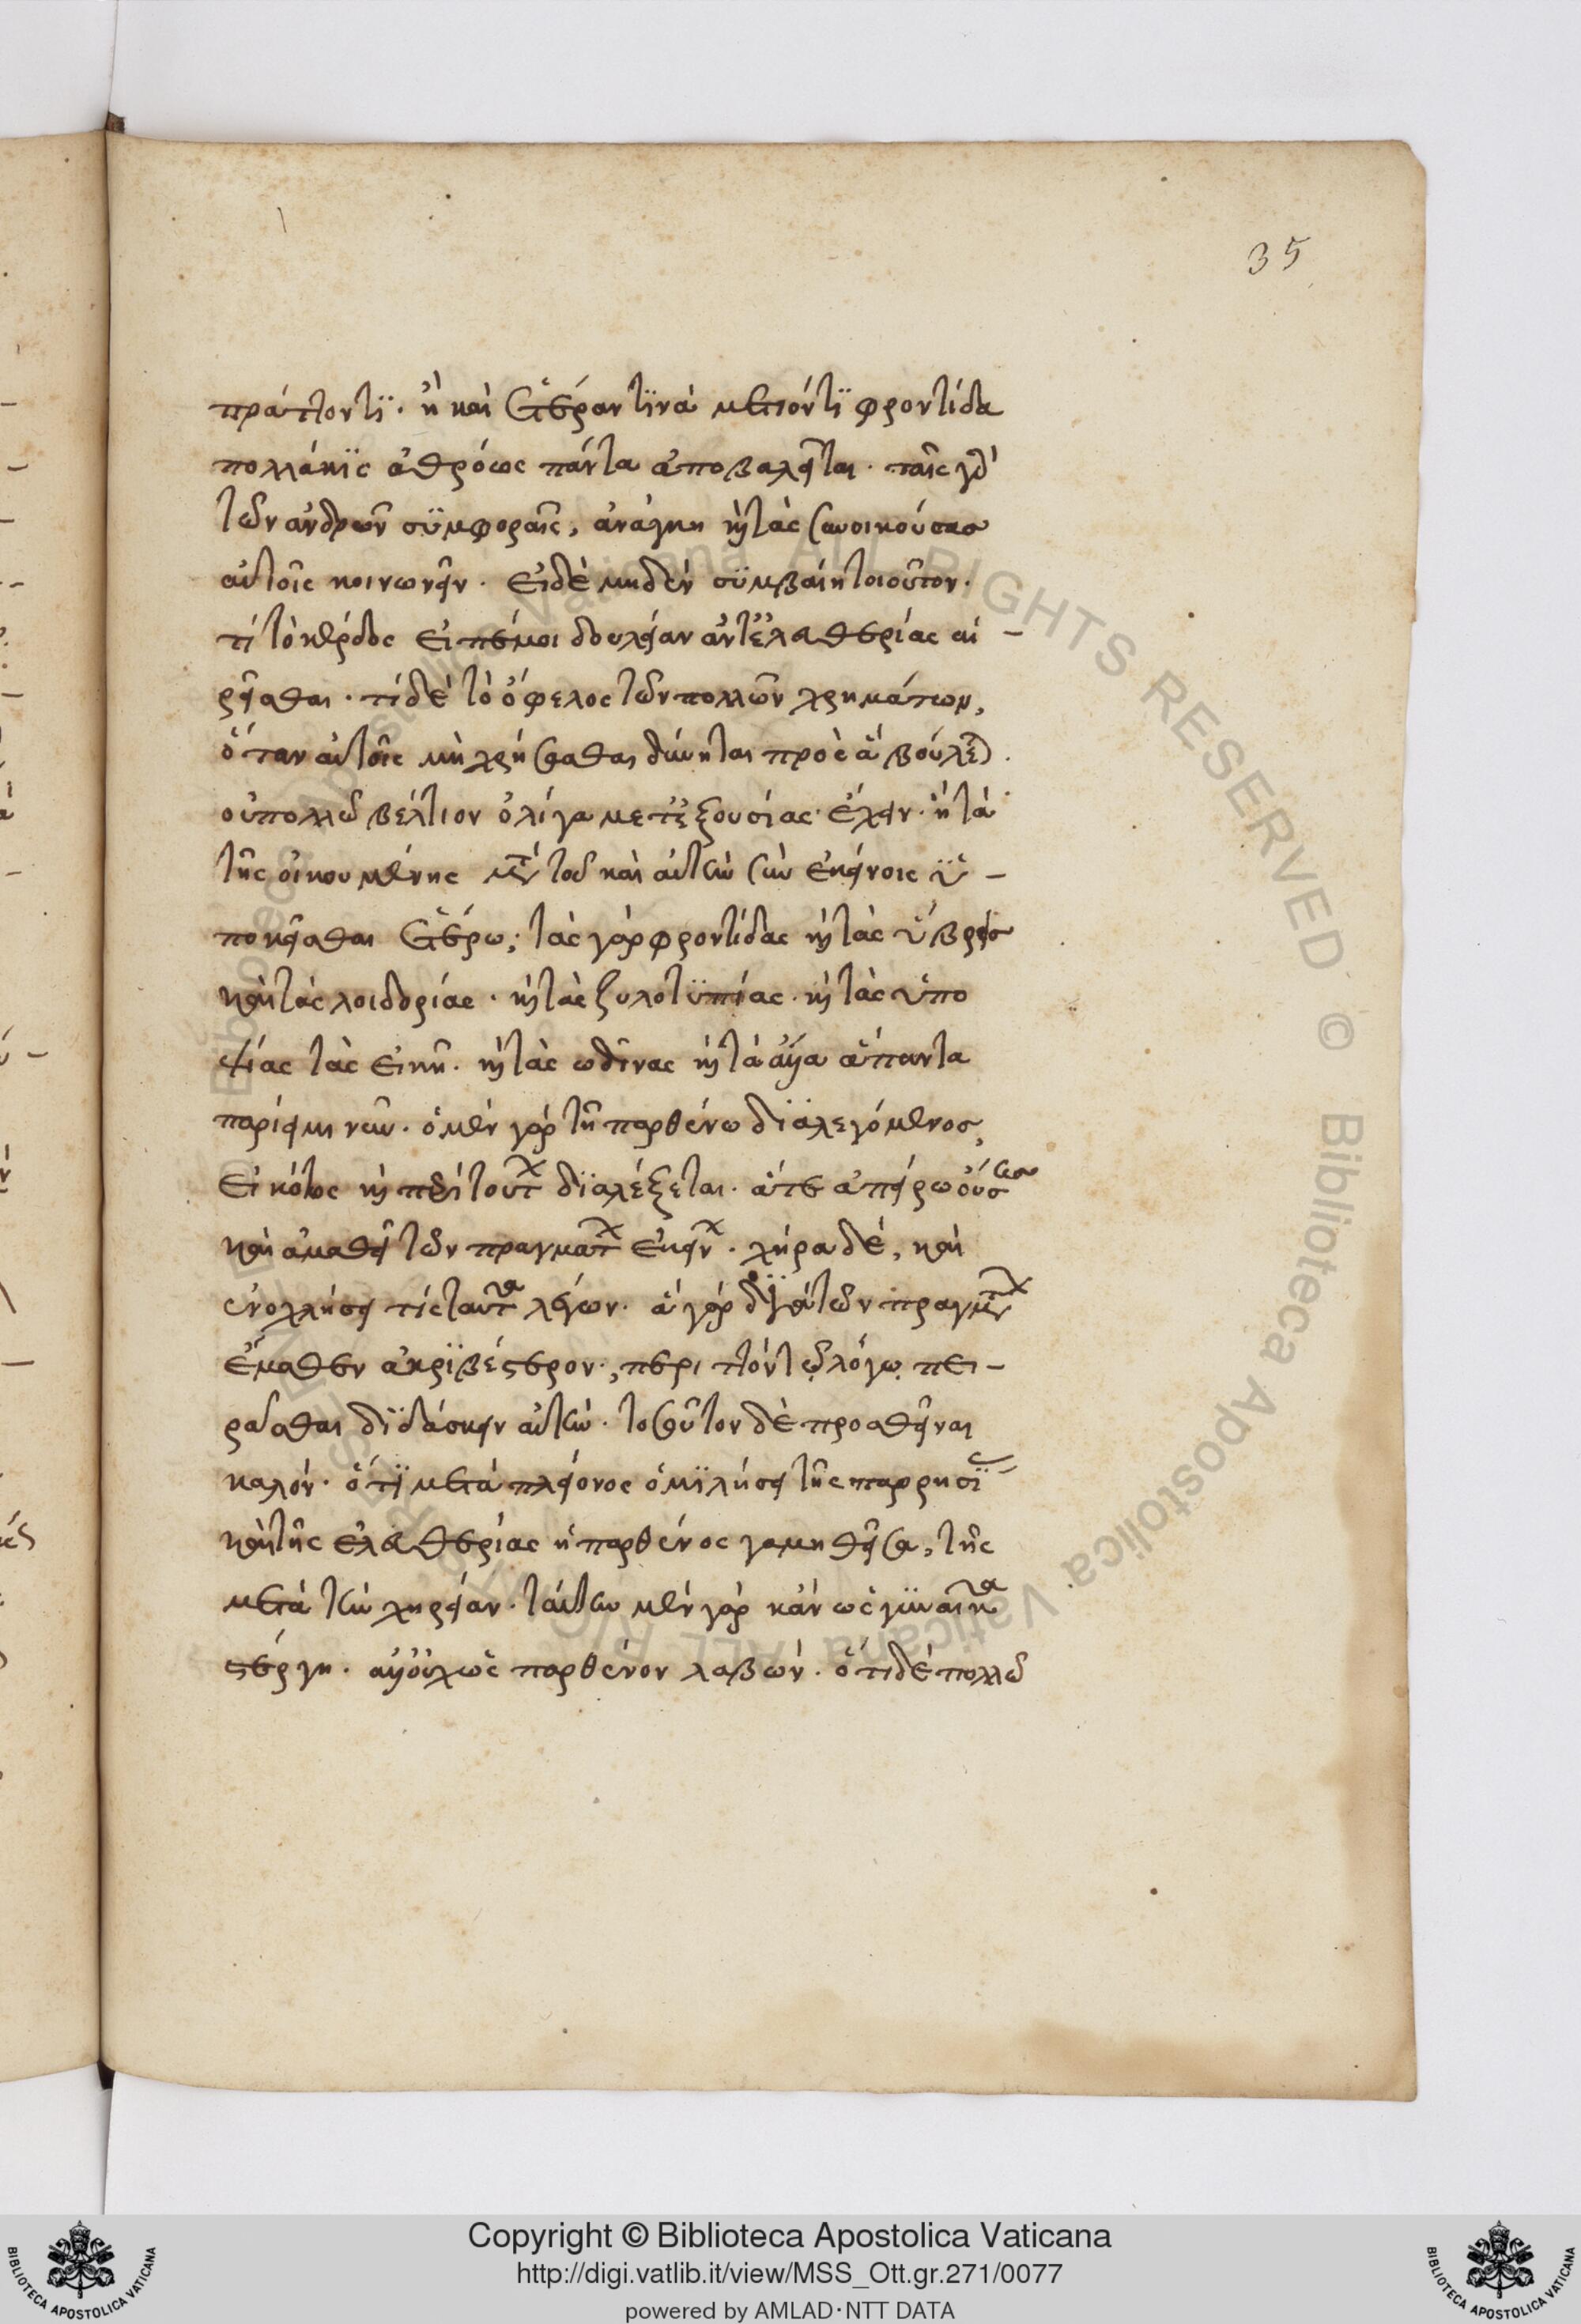 35
πράττοντϊ· ἢ καὶ ἑτέραν τϊνὰ μετιόντϊ φροντίδα
πολλάκϊς ἀθρόως πάντα ἀποβαλεῖται· ταῖς γὰρ
τῶν ἀνδρῶν σϋμφοραῖς, ἀνάγκη καὶ τὰς συνοικούσας
αὐτοῖς κοινωνεῖν· εἰ δὲ μηδὲν σϋμβαίη τοιοῦτον·
τί τὸ κέρδος εἰπέ μοι δουλείαν ἀντ' ἐλευθερίας αἱ-
ρεῖσθαι· τί δὲ τὸ ὄφελος τῶν πολλῶν χρημάτων,
ὅταν αὐτοῖς μὴ χρήσασθαι δύνηται πρὸς ἃ βούλεται·
οὐ πολλῶ βέλτιον ὀλίγα μετ' ἐξουσίας ἔχειν· ἢ τὰ
τῆς οἰκουμένης μετὰ τοῦ καὶ αὐτὴν σὺν ἐκείνοις ὑ-
ποκεῖσθαι ἑτέρω; τὰς γὰρ φροντίδας καὶ τὰς ὕβρεις
καὶ τὰς λοιδορίας· καὶ τὰς ζυλοτϋπίας· καὶ τὰς ὑπο
ψίας τὰς εἰκῆ· καὶ τὰς ὠδῖνας καὶ τὰ ἄλλα ἅπαντα
παρίημι νῦν· ὁ μὲν γὰρ τῆ παρθένω διαλεγόμενος,
εἰκότως καὶ περὶ τούτων διαλέξεται· ἅτε ἀπείρω οὔση
καὶ ἀμαθεῖ τῶν πραγμάτων ἐκείνων· χήρα δὲ, καὶ
ἐνοχλήσει τίς ταῦτα λέγων· ἃ γὰρ διὰ τῶν πραγμάτων
ἔμαθεν ἀκρϊβέστερον, περιττὸν τῷ λόγῳ πει-
ρᾶσθαι διδάσκειν αὐτήν· τοσοῦτον δὲ προσθεῖναι
καλόν· ὅτϊ μετὰ πλείονος ὁμϊλήσει τῆς παρρησίας
καὶ τῆς ἐλευθερίας ἡ παρθένος γαμηθεῖσα, τῆς
μετὰ τὴν χηρείαν· ταύτην μὲν γὰρ κἂν ὡς γϋναῖκα
στέργη· ἀλλ' οὐχ ὡς παρθένον λαβών· ὅτι δὲ πολλῶ
Copyright © Biblioteca Apostolica Vaticana
http://digi.vatlib.it/view/MSS_Ott.gr.271/0077
powered by AMLAD·NTT DATA